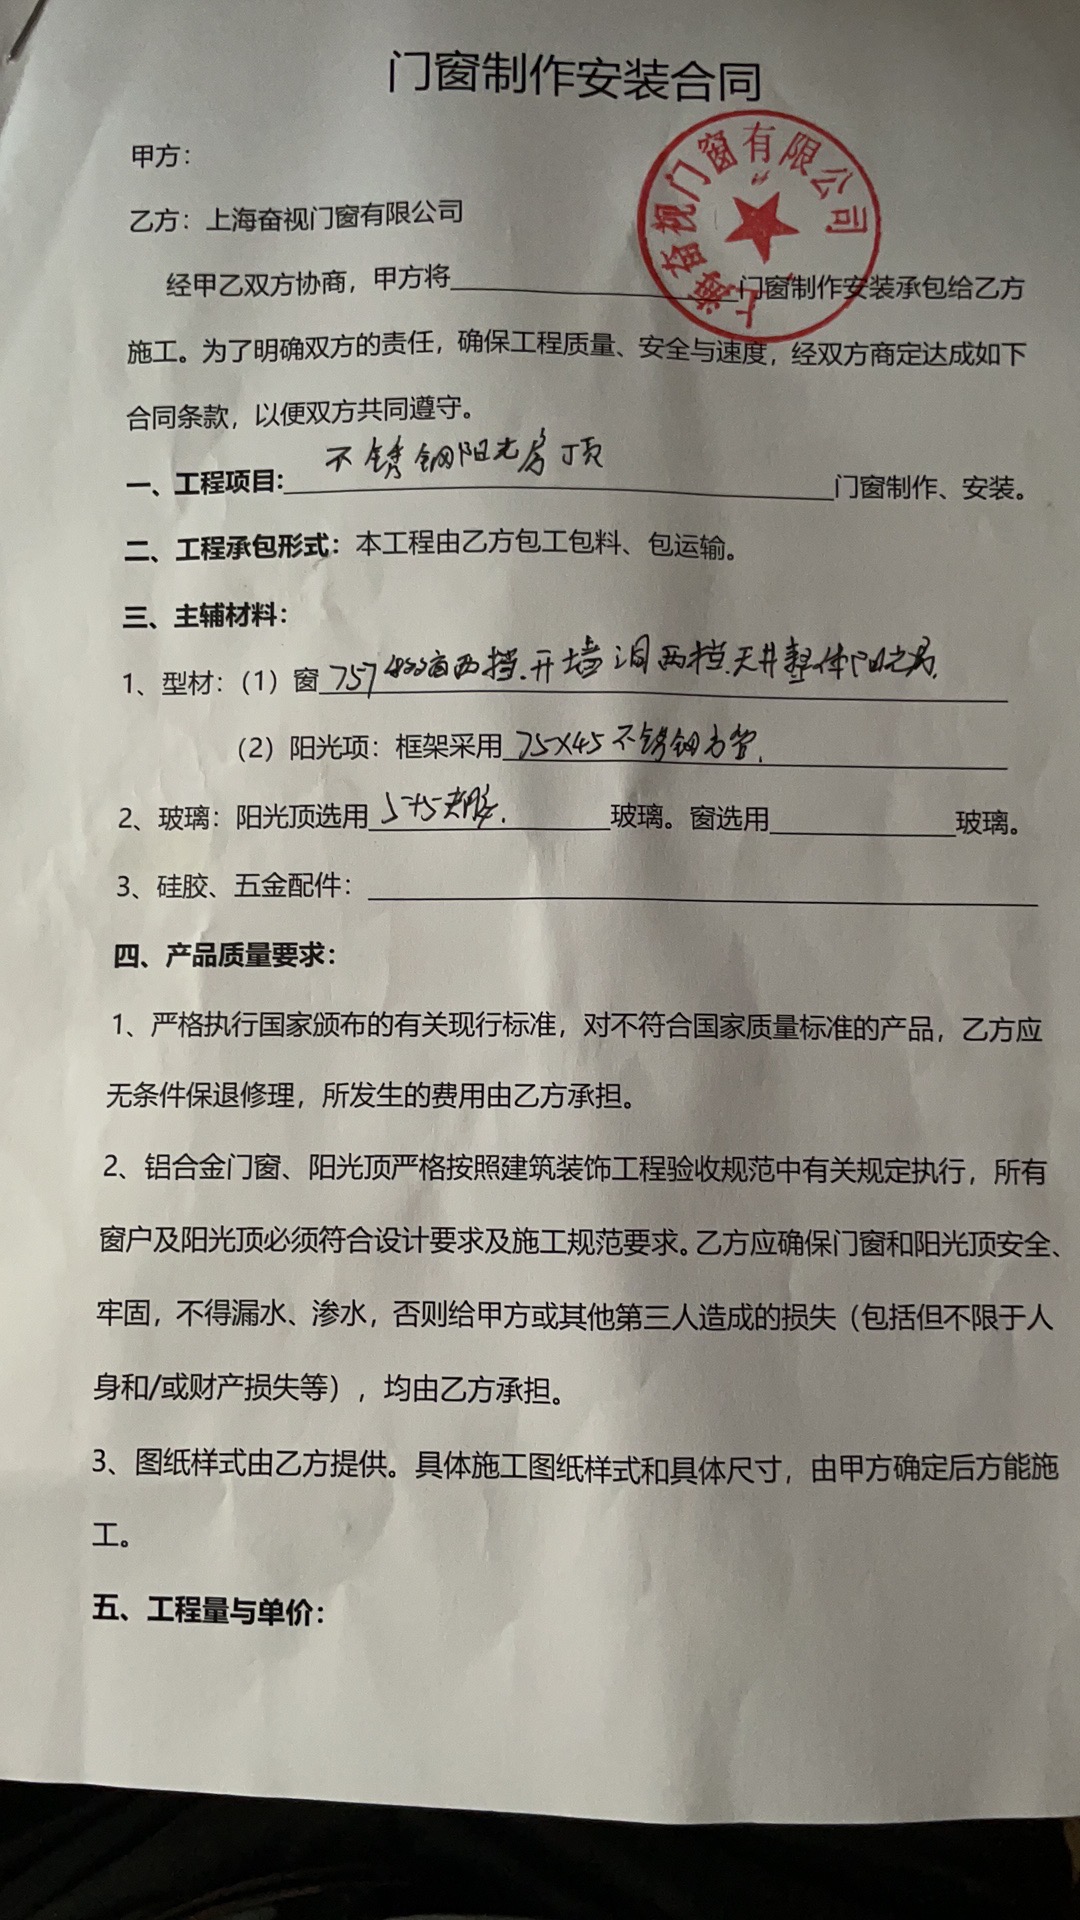 门窗制作安装合同
上海奋视门窗有限公司
甲方：
乙方：上海奋视门窗有限公司
经甲乙双方协商，甲方将门窗制作安装承包给乙方
施工。为了明确双方的责任，确保工程质量、安全与速度，经双方商定达成如下
合同条款，以便双方共同遵守。
一、工程项目:不锈钢阳光房顶门窗制作、安装。
二、工程承包形式：本工程由乙方包工包料、包运输。
三、主辅材料：
1、型材：（1）窗757 窗两挡.开墙洞两挡.天井整体阳光房.
（2）阳光项：框架采用75X45不锈钢方管.
2、玻璃：阳光顶选用5+5夹胶.玻璃。窗选用玻璃。
3、硅胶、五金配件：
四、产品质量要求：
1、严格执行国家颁布的有关现行标准，对不符合国家质量标准的产品，乙方应
无条件保退修理，所发生的费用由乙方承担。
2、铝合金门窗、阳光顶严格按照建筑装饰工程验收规范中有关规定执行，所有
窗户及阳光顶必须符合设计要求及施工规范要求。乙方应确保门窗和阳光顶安全、
牢固，不得漏水、渗水，否则给甲方或其他第三人造成的损失（包括但不限于人
身和/或财产损失等），均由乙方承担。
3、图纸样式由乙方提供。具体施工图纸样式和具体尺寸，由甲方确定后方能施
工。
五、工程量与单价：